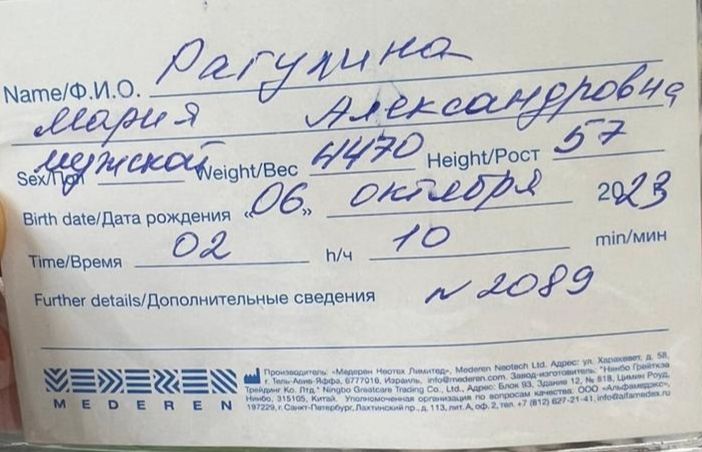 Name/Ф.И.О. Рагулина
Мария Александровна
Sex/Пол мужской Weight/Вес 4470 Height/Рост 57
Birth date/Дата рождения «06» октября 2023
Time/Время 02 h/ч 10 min/мин
Further details/Дополнительные сведения N 2089
MEDEREN
Производитель: «Медерен Неотех Лимитед», Mederen Neotech Ltd. Адрес: ул. Харакевет, д. 58,
г. Тель-Авив-Яффа, 6777016, Израиль, info@mederen.com. Завод-изготовитель: "Нинбо Грейткэа
Трейдинг Ко. Лтд." Ningbo Greatcare Trading Co., Ltd., Адрес: Блок 93, Здание 12, № 818, Цимин Роуд,
Нинбо, 315105, Китай. Уполномоченная организация по вопросам качества: ООО «Альфамедэкс»,
197229, г. Санкт-Петербург, Лахтинский пр., д. 113, лит. А, оф. 2, тел. +7 (812) 627-21-41, info@alfamedex.ru